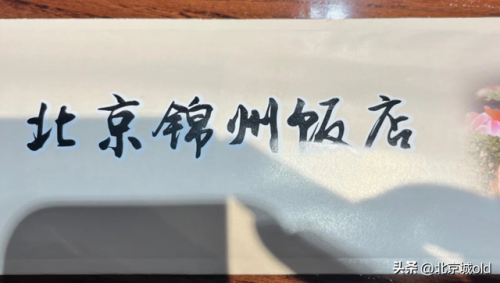 北京锦州饭店
头条 @北京城old